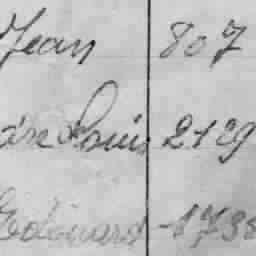 Jean 807
re Louis 2129
Edouard 1738